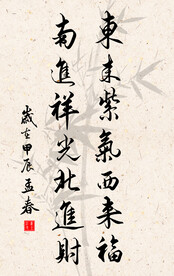 東來紫氣西来福
南進祥光北進財
歲在甲辰孟春